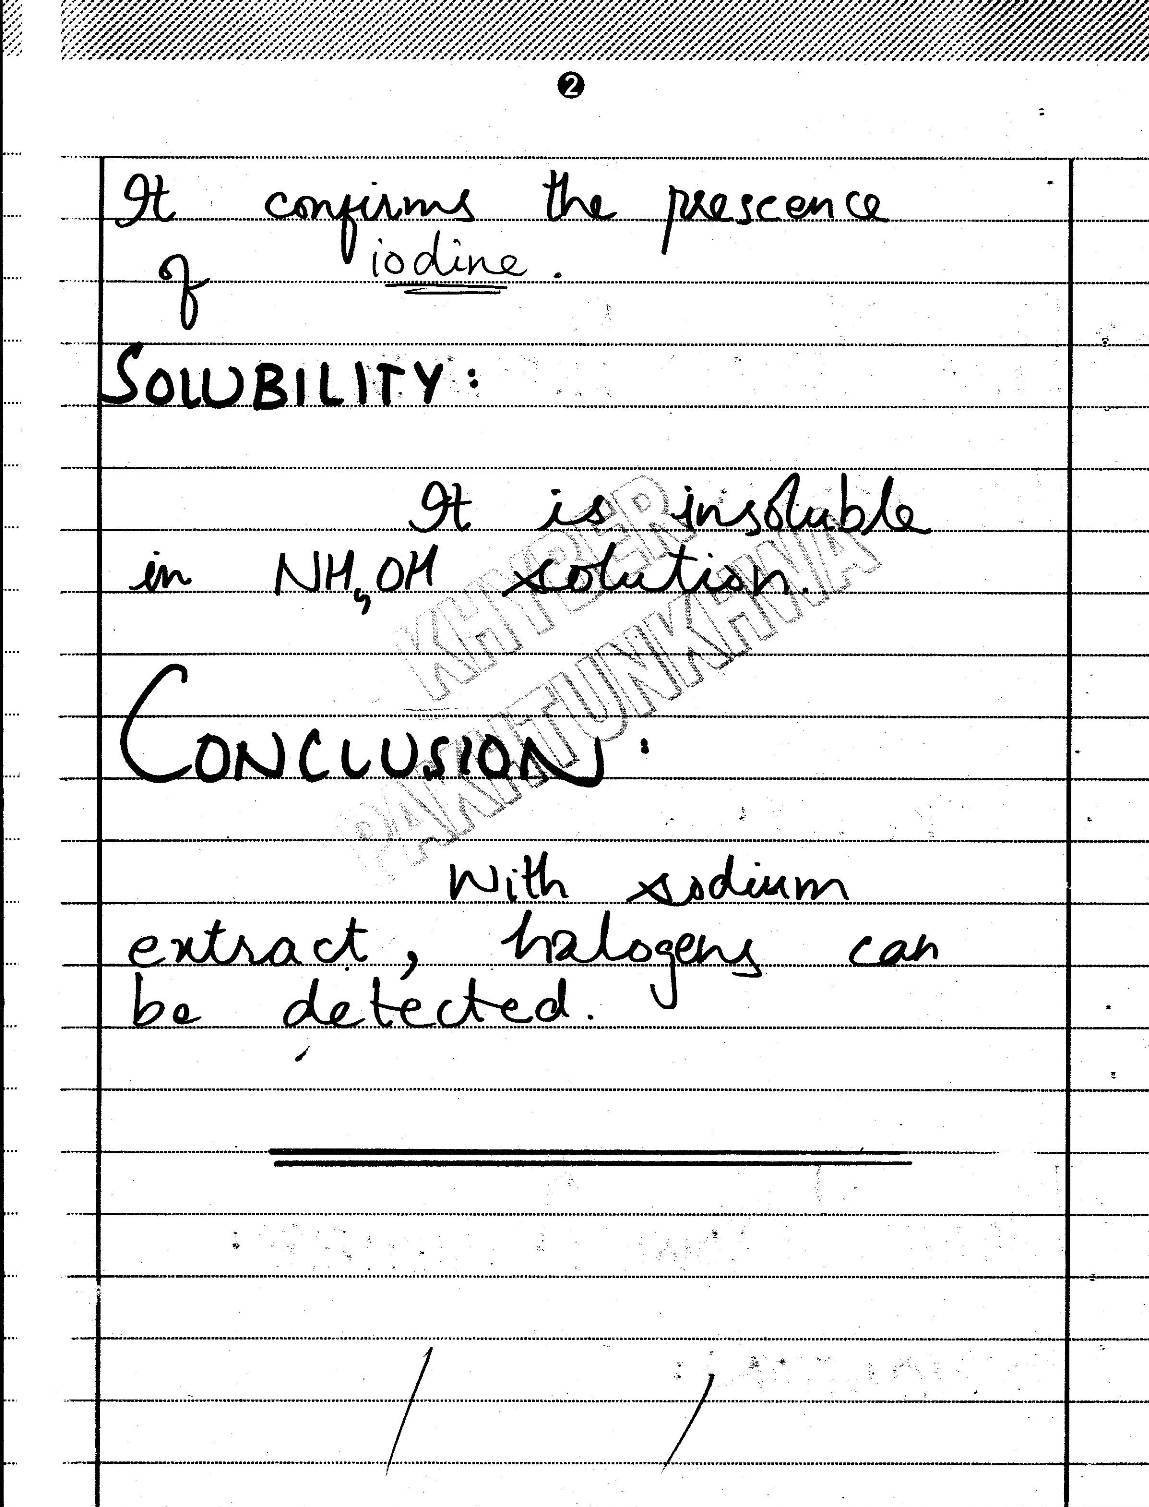 2
It confirms the prescence
of iodine.
SOLUBILITY:
It is insoluble
in NH₄OH solution.
KHYBER
PAKHTUNKHWA
CONCLUSION:
With sodium
extract, halogens can
be detected.